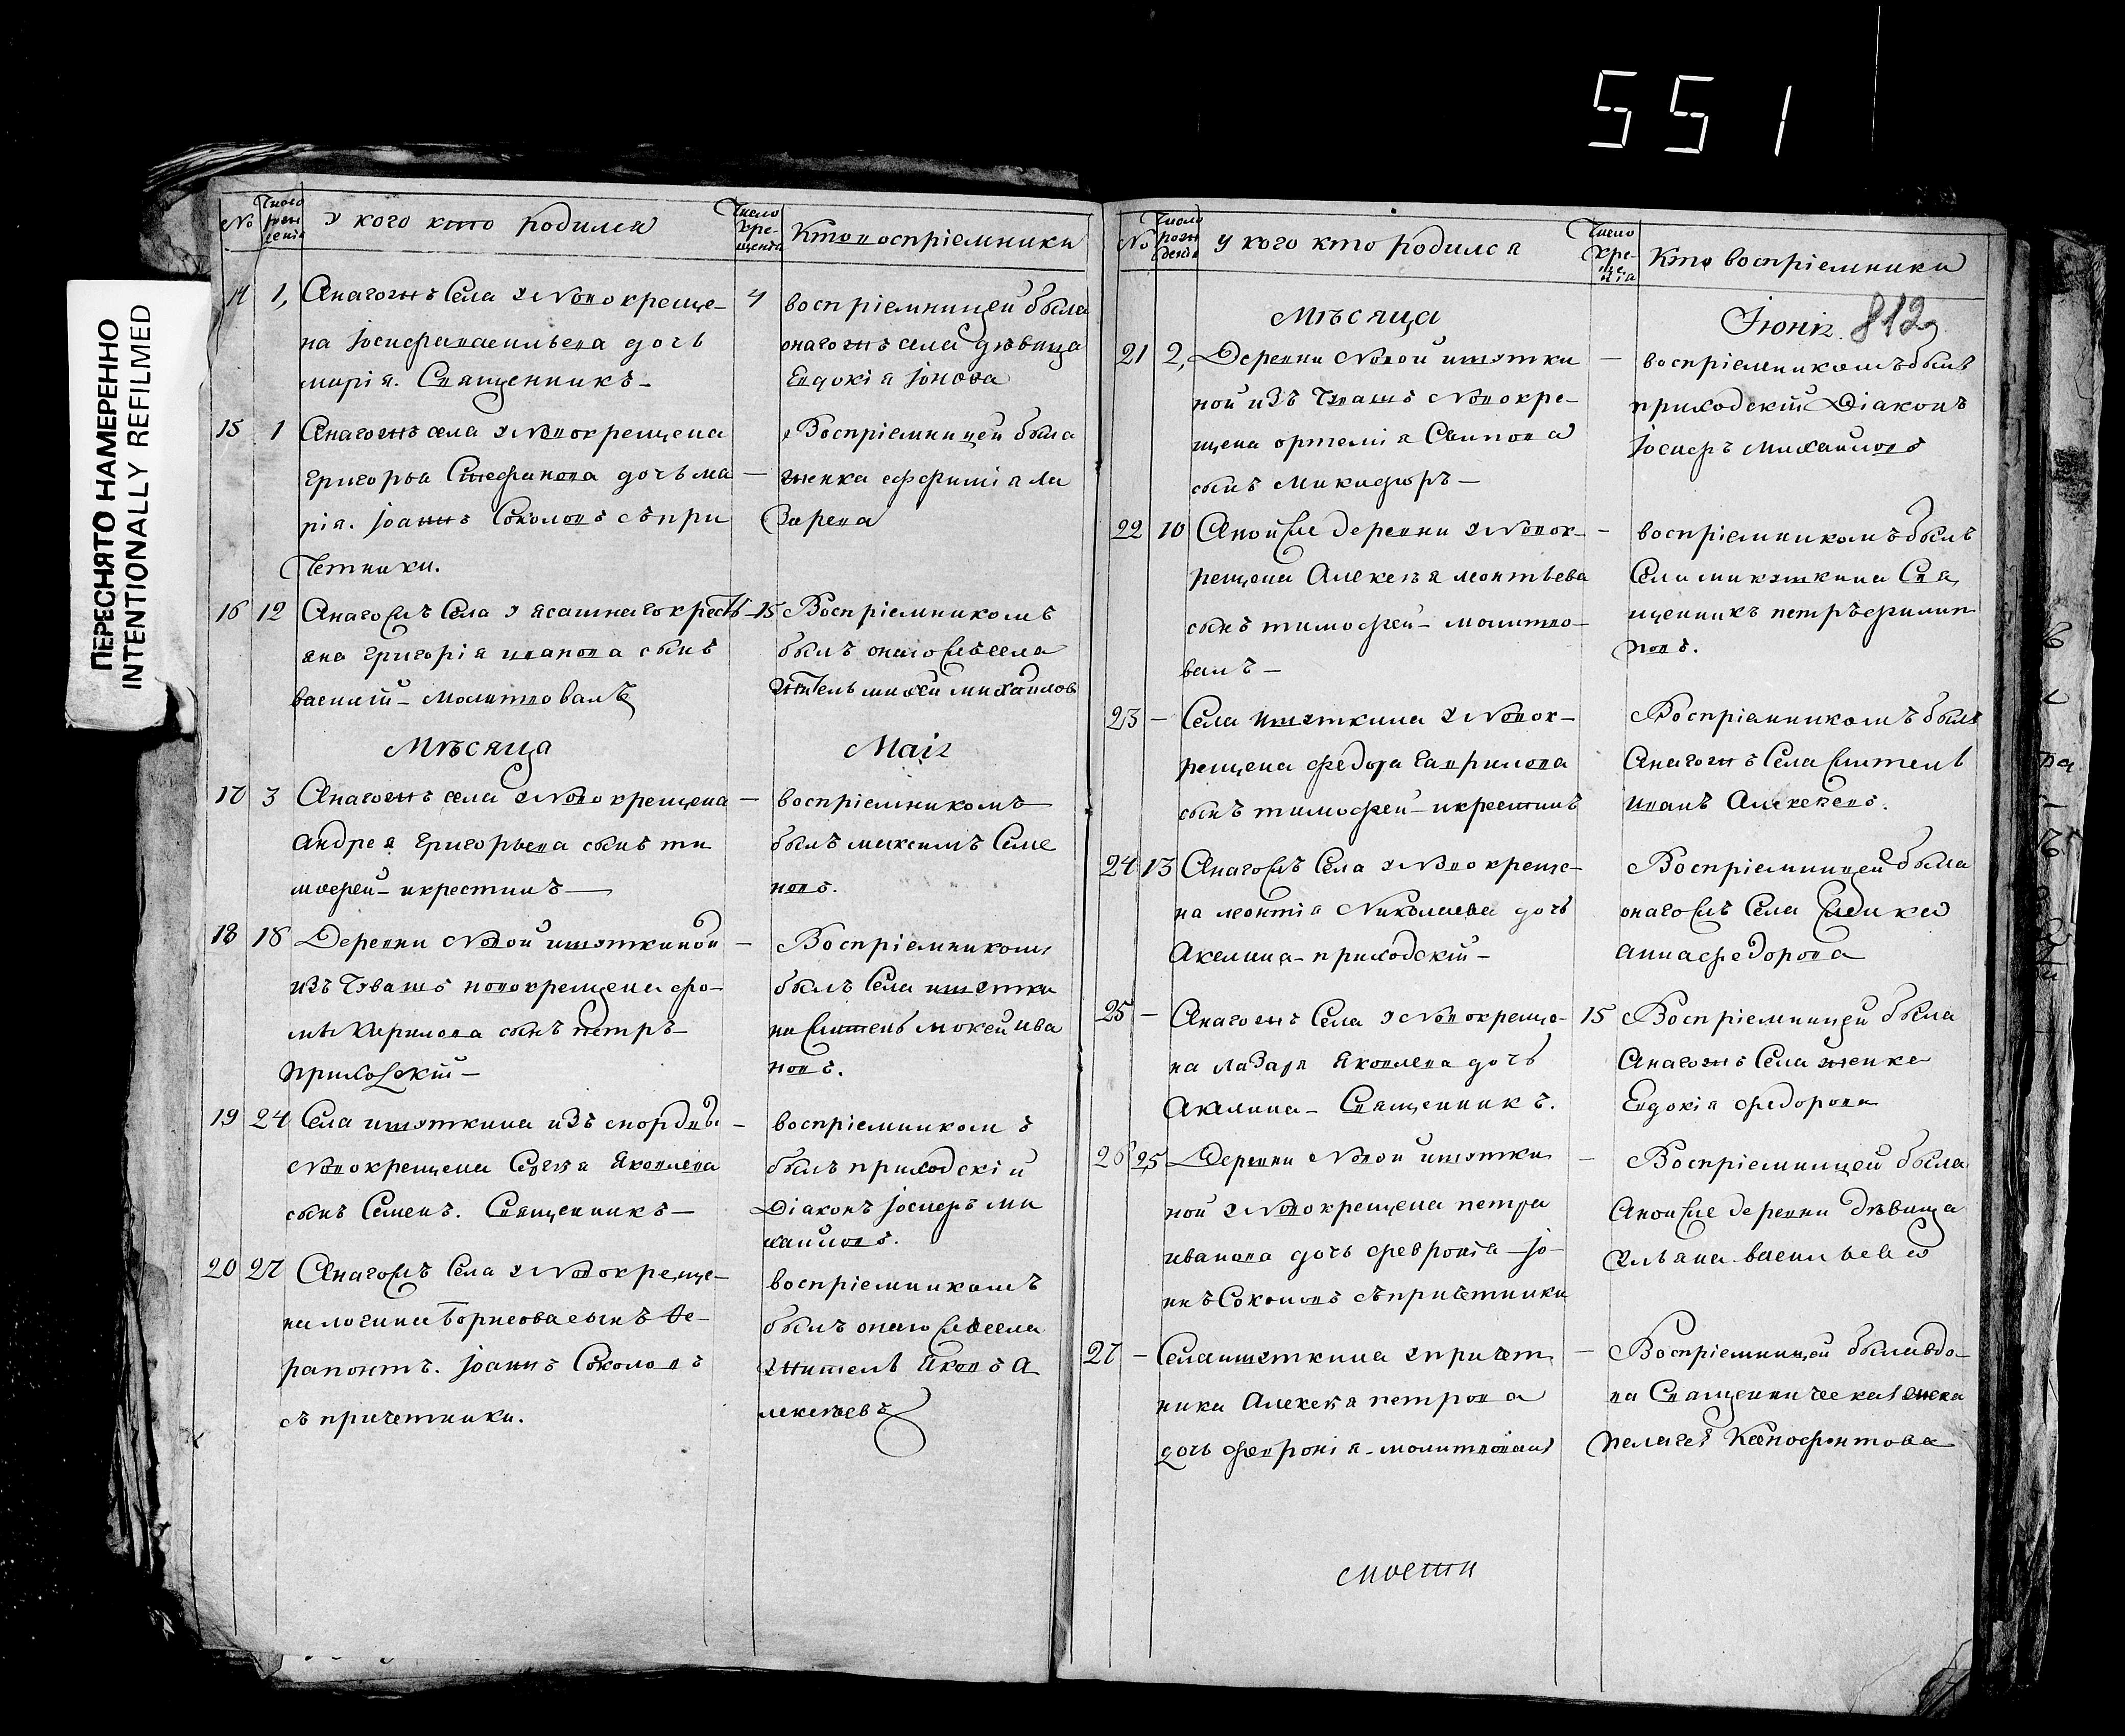 551
ПЕРЕСНЯТО НАМЕРЕННО
INTENTIONALLY REFILMED
№ Число рожденія У кого кто родился Число крещенія Кто восприемники
14 1, Онагожъ Села у Новокреще- 4
на Іосифа васильева дочь
марія. Священникъ-
воспріемницей была
онагожъ села дѣвица
Евдокія Іонова
15 1 Онагожъ села у Новокрещена
григорья Стефанова дочь ма —
рія. Іоаннъ Соколовъ съ при
четники.
Воспріемницей была
женка еффимія ла
зарева
16 12 Онагожъ Села у ясашнаго кресть 15
яна григорія иванова сынъ
василій - молитвовалъ
Воспріемникомъ
былъ онагожъ села
житель михей михаиловъ
Мѣсяца Маія
17 3 Онагожъ села у Новокрещена —
андрея григорьева сынъ ти
мофей - и крестинъ —
воспріемникомъ
былъ максимъ Семе
новъ.
18 18 Деревни Новой ишуткиной —
изъ Чувашъ новокрещена фо-
мы Кирилова сынъ петръ-
приходскій -
Воспріемникомъ
былъ Села ишутки
на житель мокей ива
новъ.
19 24 Села ишуткина изъ мордвы —
Новокрещена Сергѣя Яковлева
сынъ Семенъ. Священникъ -
воспріемникомъ
былъ приходскій
Діаконъ Іосифъ ми
хаиловъ.
20 27 Онагожъ Села у Новокреще-
на логина Борисова сынъ Фе-
рапонтъ. Іоаннъ Соколовъ
съ причетники.
воспріемникомъ
былъ онагожъ села
житель Яковъ А
лексѣевъ
№ Число рожденія У кого кто родился Число крещенія Кто воспріемники
Мѣсяца Іюнія. 812
21 2, Деревни Новой ишутки —
ной изъ Чувашъ Новокре-
щена ортемія
сынъ Микифоръ -
воспріемникомъ былъ
приходскій Діаконъ
Іосифъ Михаиловъ
22 10 Оной же деревни у Новок- —
рещена Алексѣя леонтьева
сынъ тимофей - молитво-
валъ -
воспріемникомъ былъ
Села микуткина Свя
щенникъ петръ филип
повъ.
23 — Села Ишуткина у Новок-
рещена федора гаврилова
сынъ тимофей - и крестинъ
Воспріемникомъ былъ
Онагожъ Села житель
иванъ Алексѣевъ.
24 13 Онагожъ Села у Новокреще-
на леонтія Николаева дочь
Акелина - приходскій -
Воспріемницей была
онагожъ Села женка
анна федорова
25 — Онагожъ Села у Новокреще- 15
на лазаря Яковлева дочь
Акилина - Священникъ.
Воспріемницей была
Онагожъ Села женка
Евдокія федорова
26 25 Деревни Новой ишутки —
ной у Новокрещена петра
иванова дочь февронія - Іо-
ннъ Соколовъ съ причетники
Воспріемницей была
Оной же деревни дѣвица
Ульяна васильева
27 — Села ишуткина у причет —
ника Алексѣя петрова
дочь февронія - молитвовалъ
Воспріемницей была вдо-
ва Священническая женка
пелагея Ксенофонтова